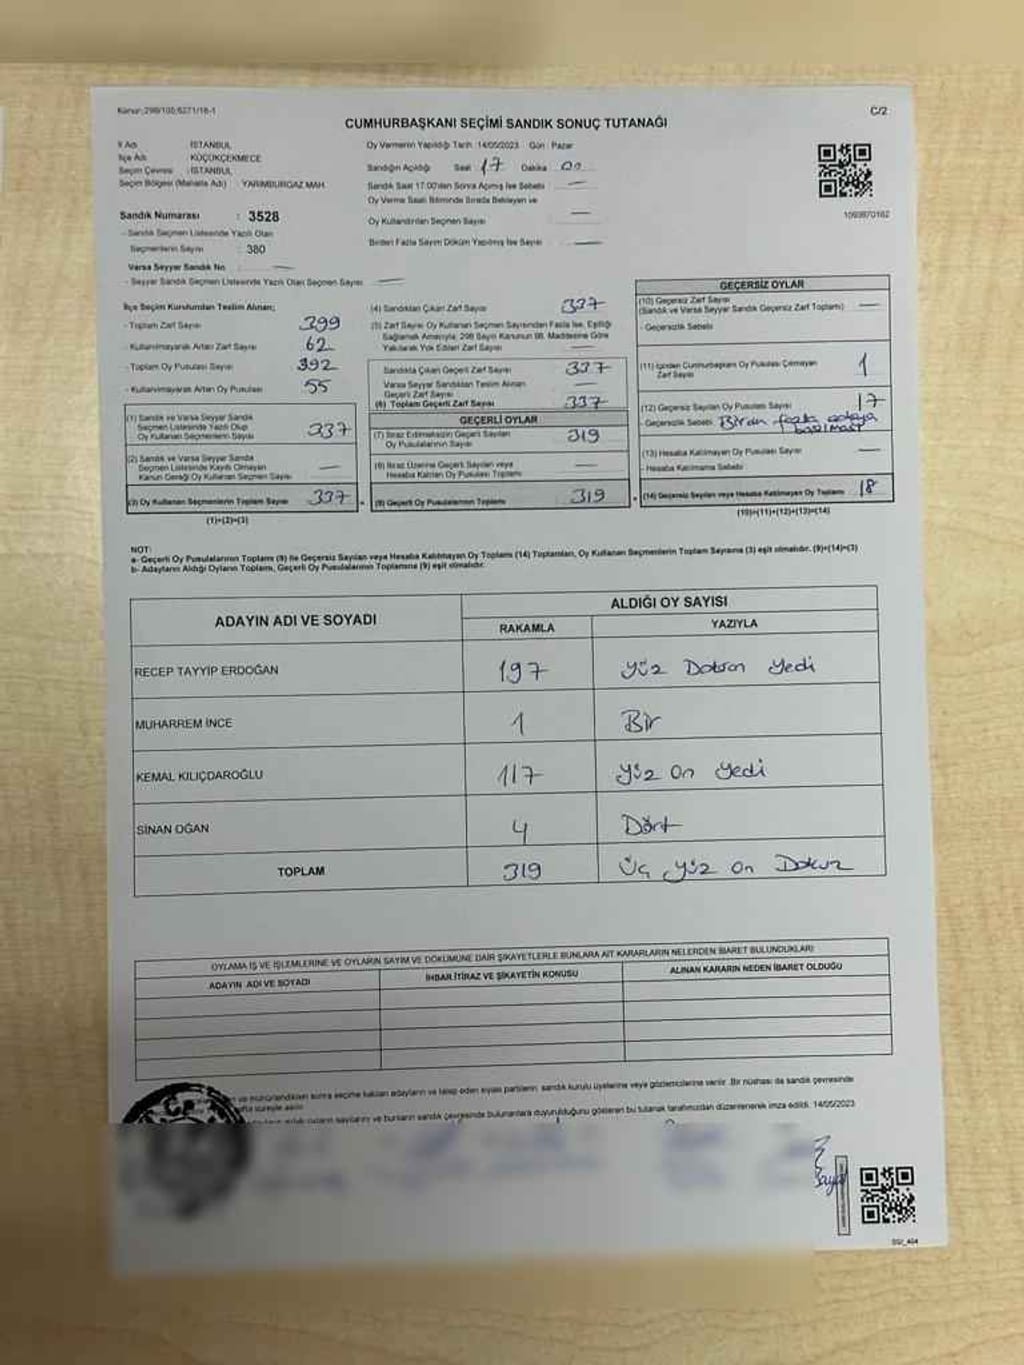 Kanun:298/105;6271/16-1
C/2
CUMHURBAŞKANI SEÇİMİ SANDIK SONUÇ TUTANAĞI
İl Adı : İSTANBUL
İlçe Adı : KÜÇÜKÇEKMECE
Seçim Çevresi : İSTANBUL
Seçim Bölgesi (Mahalle Adı) YARIMBURGAZ MAH.
Sandık Numarası : 3528
- Sandık Seçmen Listesinde Yazılı Olan
Seçmenlerin Sayısı : 380
Varsa Seyyar Sandık No
- Seyyar Sandık Seçmen Listesinde Yazılı Olan Seçmen Sayısı
Oy Vermenin Yapıldığı Tarih 14/05/2023 Gün : Pazar
Sandığın Açıldığı Saat 17 Dakika 00
Sandık Saat 17.00'den Sonra Açılmış İse Sebebi
Oy Verme Saati Bitiminde Sırada Bekleyen ve
Oy Kullandırılan Seçmen Sayısı
Birden Fazla Sayım Döküm Yapılmış İse Sayısı
1093870162
İlçe Seçim Kurulundan Teslim Alınan;
- Toplam Zarf Sayısı 399
- Kullanılmayarak Artan Zarf Sayısı 62
- Toplam Oy Pusulası Sayısı 392
- Kullanılmayarak Artan Oy Pusulası 55
(1) Sandık ve Varsa Seyyar Sandık
Seçmen Listesinde Yazılı Olup
Oy Kullanan Seçmenlerin Sayısı 337
(2) Sandık ve Varsa Seyyar Sandık
Seçmen Listesinde Kayıtlı Olmayan
Kanun Gereği Oy Kullanan Seçmen Sayısı
(3) Oy Kullanan Seçmenlerin Toplam Sayısı 337
(1)+(2)=(3)
(4) Sandıktan Çıkan Zarf Sayısı 337
(5) Zarf Sayısı Oy Kullanan Seçmen Sayısından Fazla İse, Eşitliği
Sağlamak Amacıyla; 298 Sayılı Kanunun 98. Maddesine Göre
Yakılarak Yok Edilen Zarf Sayısı
Sandıkta Çıkan Geçerli Zarf Sayısı 337
Varsa Seyyar Sandıktan Teslim Alınan
Geçerli Zarf Sayısı
(6) Toplam Geçerli Zarf Sayısı 337
GEÇERLİ OYLAR
(7) İtiraz Edilmeksizin Geçerli Sayılan
Oy Pusulalarının Sayısı 319
(8) İtiraz Üzerine Geçerli Sayılan veya
Hesaba Katılan Oy Pusulası Toplamı
(9) Geçerli Oy Pusulalarının Toplamı 319
GEÇERSİZ OYLAR
(10) Geçersiz Zarf Sayısı
(Sandık ve Varsa Seyyar Sandık Geçersiz Zarf Toplamı)
- Geçersizlik Sebebi
(11) İçinden Cumhurbaşkanı Oy Pusulası Çıkmayan
Zarf Sayısı 1
(12) Geçersiz Sayılan Oy Pusulası Sayısı 17
- Geçersizlik Sebebi Birden fazla adaya
basılması
(13) Hesaba Katılmayan Oy Pusulası Sayısı
- Hesaba Katılmama Sebebi
(14) Geçersiz Sayılan veya Hesaba Katılmayan Oy Toplamı 18
(10)+(11)+(12)+(13)=(14)
NOT:
a- Geçerli Oy Pusulalarının Toplamı (9) ile Geçersiz Sayılan veya Hesaba Katılmayan Oy Toplamı (14) Toplamları, Oy Kullanan Seçmenlerin Toplam Sayısına (3) eşit olmalıdır. (9)+(14)=(3)
b- Adayların Aldığı Oyların Toplamı, Geçerli Oy Pusulalarının Toplamına (9) eşit olmalıdır.
ADAYIN ADI VE SOYADI ALDIĞI OY SAYISI
RAKAMLA YAZIYLA
RECEP TAYYİP ERDOĞAN 197 Yüz Doksan Yedi
MUHARREM İNCE 1 Bir
KEMAL KILIÇDAROĞLU 117 Yüz On Yedi
SİNAN OĞAN 4 Dört
TOPLAM 319 Üç Yüz On Dokuz
OYLAMA İŞ VE İŞLEMLERİNE VE OYLARIN SAYIM VE DÖKÜMÜNE DAİR ŞİKAYETLERLE BUNLARA AİT KARARLARIN NELERDEN İBARET BULUNDUKLARI
ADAYIN ADI VE SOYADI İHBAR İTİRAZ VE ŞİKAYETİN KONUSU ALINAN KARARIN NEDEN İBARET OLDUĞU
sonra seçime katılan adayların ve talep eden siyasi partilerin sandık kurulu üyelerine veya gözlemcilerine verilir. Bir nüshası da sandık çevresinde
hafta süreyle asılır.
sayılarını ve bunların sandık çevresinde bulunanlara duyurulduğunu gösteren bu tutanak tarafımızdan düzenlenerek imza edildi. 14/05/2023